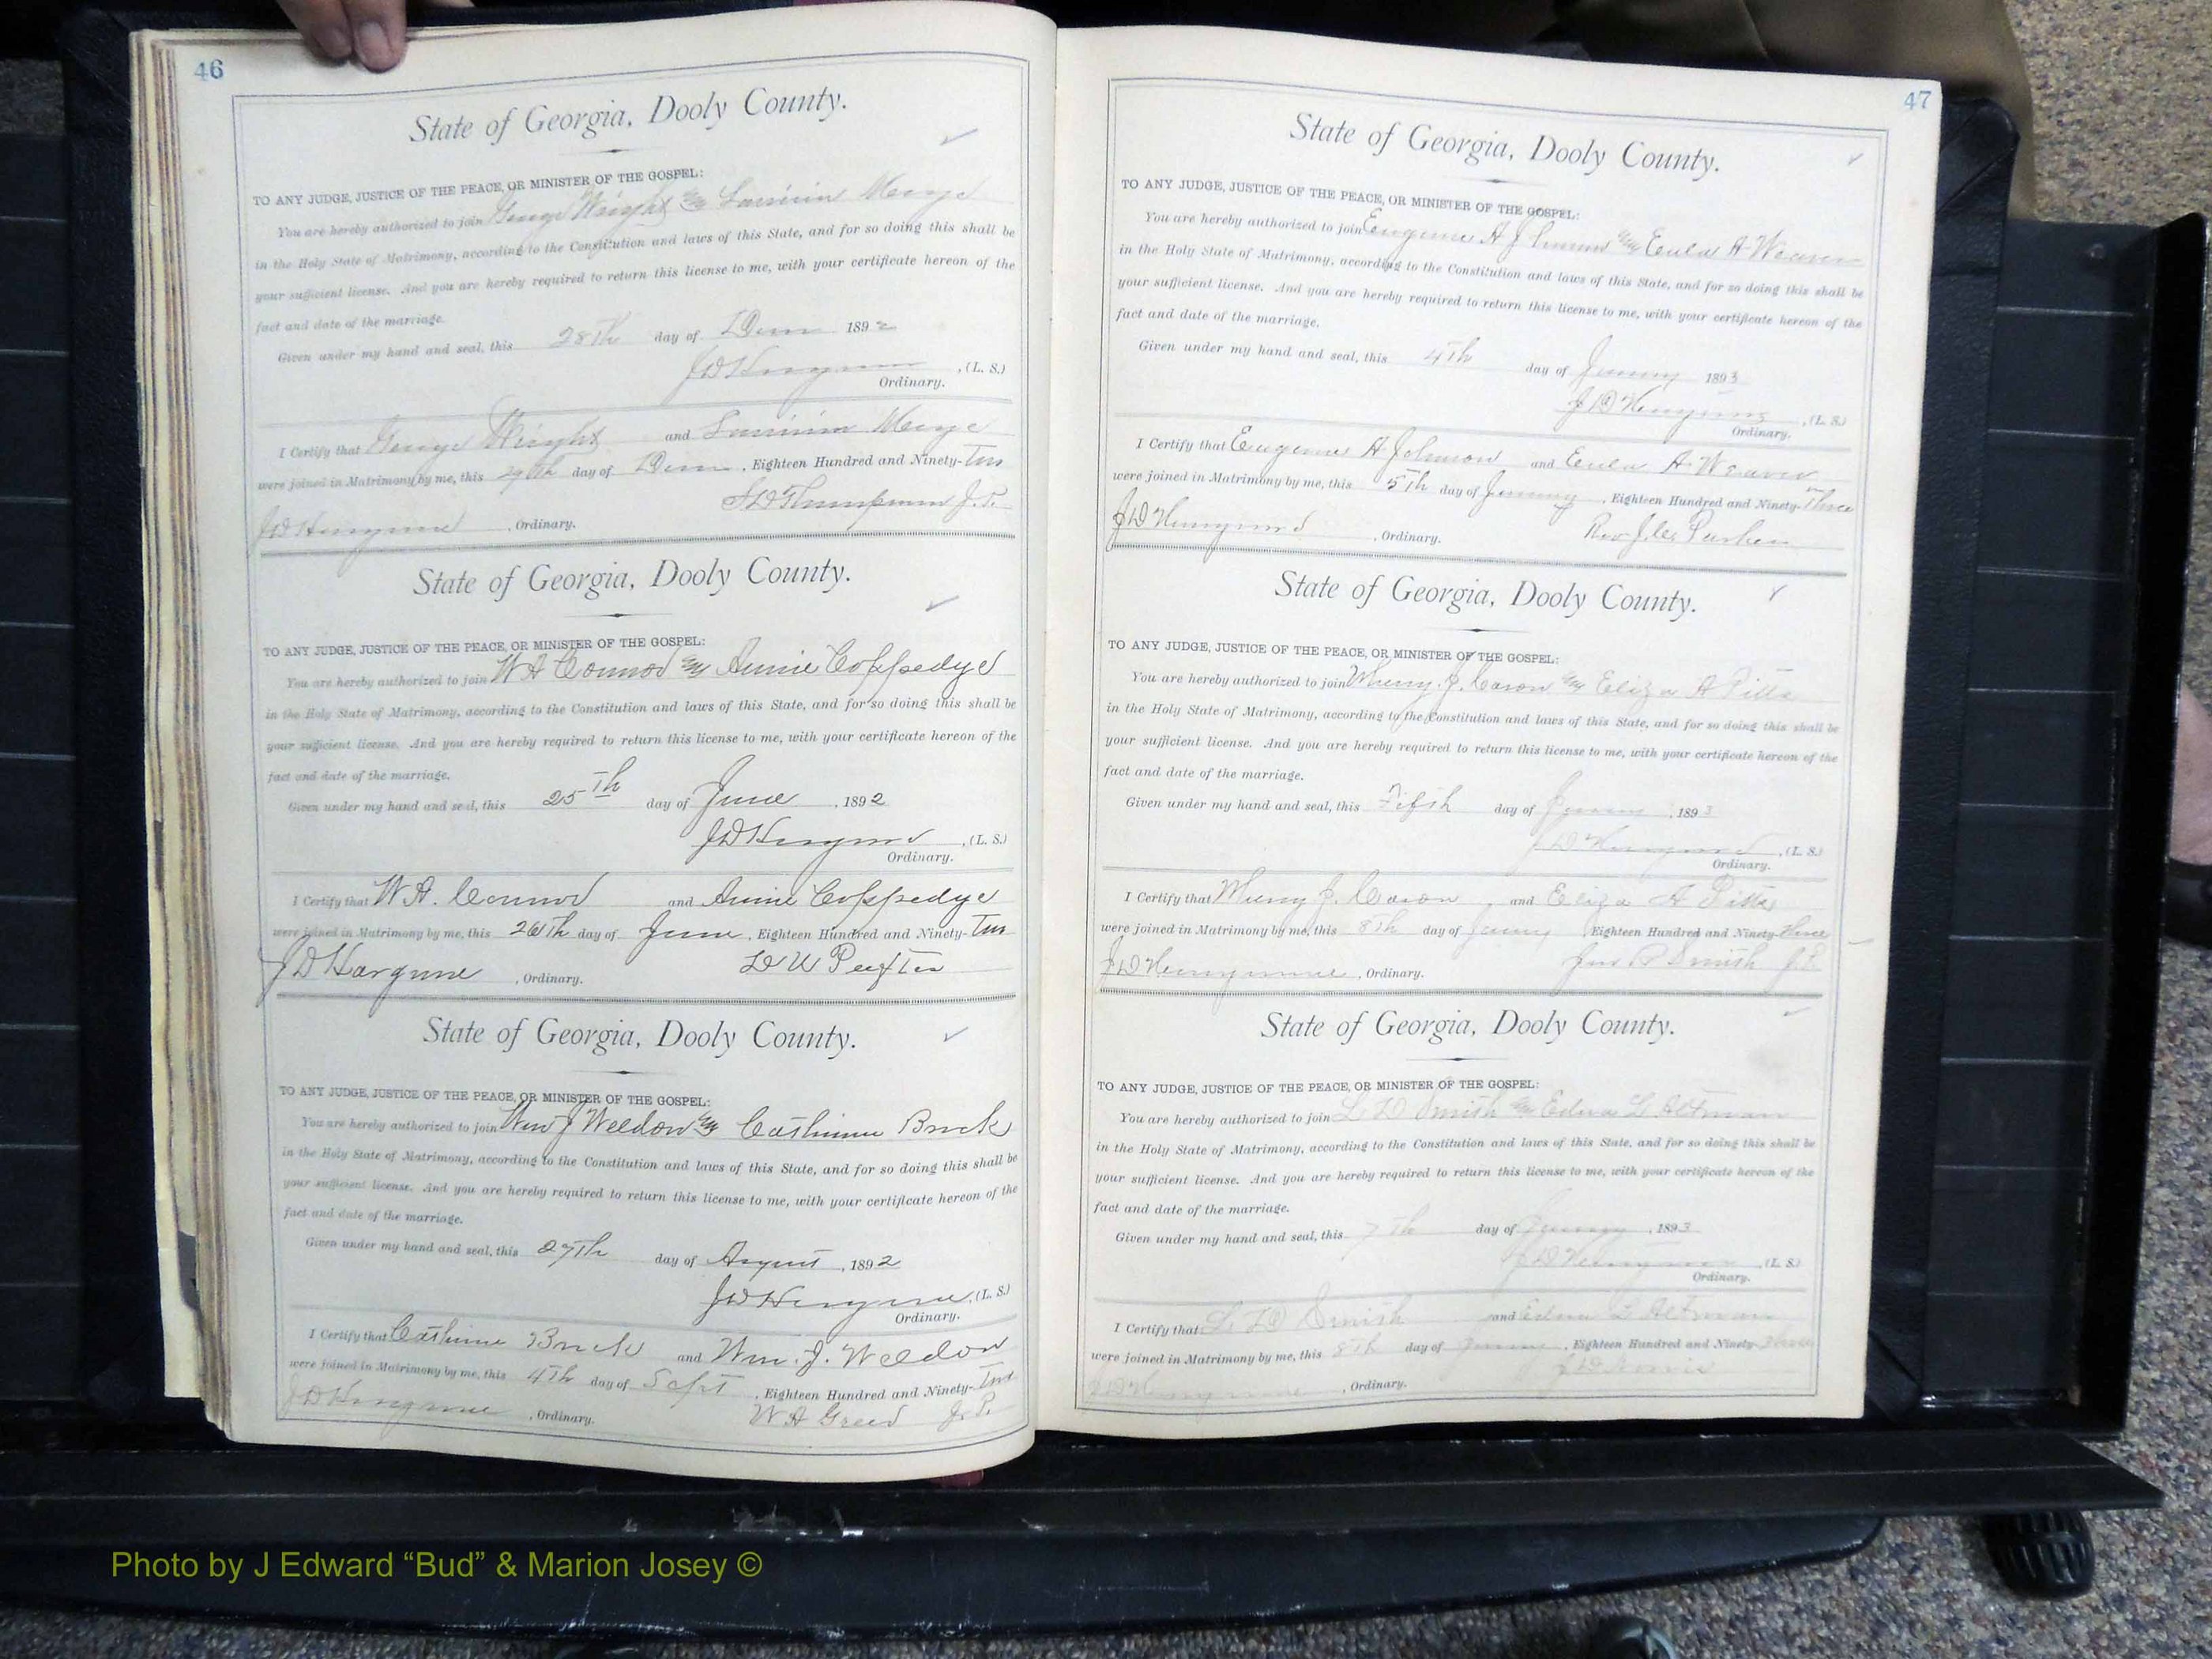 46
State of Georgia, Dooly County.
TO ANY JUDGE, JUSTICE OF THE PEACE, OR MINISTER OF THE GOSPEL:
You are hereby authorized to join George Wright &
in the Holy State of Matrimony, according to the Constitution and laws of this State, and for so doing this shall be
your sufficient license. And you are hereby required to return this license to me, with your certificate hereon of the
fact and date of the marriage.
Given under my hand and seal, this 28th day of 1892
J D , (L. S.)
Ordinary.
I Certify that George Wright and
were joined in Matrimony by me, this 29th day of , Eighteen Hundred and Ninety-Two
J. P.
J D , Ordinary.
State of Georgia, Dooly County.
TO ANY JUDGE, JUSTICE OF THE PEACE, OR MINISTER OF THE GOSPEL:
You are hereby authorized to join W A Connor Annie Coppedge
in the Holy State of Matrimony, according to the Constitution and laws of this State, and for so doing this shall be
your sufficient license. And you are hereby required to return this license to me, with your certificate hereon of the
fact and date of the marriage.
Given under my hand and seal, this 25th day of June , 1892
J D , (L. S.)
Ordinary.
I Certify that W A. Connor and Annie Coppedge
were joined in Matrimony by me, this 26th day of June , Eighteen Hundred and Ninety-Two
J D , Ordinary.
State of Georgia, Dooly County.
TO ANY JUDGE, JUSTICE OF THE PEACE, OR MINISTER OF THE GOSPEL:
You are hereby authorized to join Wm J Weldon
in the Holy State of Matrimony, according to the Constitution and laws of this State, and for so doing this shall be
your sufficient license. And you are hereby required to return this license to me, with your certificate hereon of the
fact and date of the marriage.
Given under my hand and seal, this 27th day of August , 1892
J D , (L. S.)
Ordinary.
I Certify that and Wm. J. Weldon
were joined in Matrimony by me, this 4th day of Sept , Eighteen Hundred and Ninety-Two
W A J. P.
J D , Ordinary.
47
State of Georgia, Dooly County.
TO ANY JUDGE, JUSTICE OF THE PEACE, OR MINISTER OF THE GOSPEL:
You are hereby authorized to join Eugene H Johnson Eula A Weaver
in the Holy State of Matrimony, according to the Constitution and laws of this State, and for so doing this shall be
your sufficient license. And you are hereby required to return this license to me, with your certificate hereon of the
fact and date of the marriage.
Given under my hand and seal, this 4th day of January 1893
J D , (L. S.)
Ordinary.
I Certify that Eugene H Johnson and Eula A Weaver
were joined in Matrimony by me, this 5th day of January , Eighteen Hundred and Ninety-Three
Rev
J D , Ordinary.
State of Georgia, Dooly County.
TO ANY JUDGE, JUSTICE OF THE PEACE, OR MINISTER OF THE GOSPEL:
You are hereby authorized to join J. Cason Eliza A Pitts
in the Holy State of Matrimony, according to the Constitution and laws of this State, and for so doing this shall be
your sufficient license. And you are hereby required to return this license to me, with your certificate hereon of the
fact and date of the marriage.
Given under my hand and seal, this Fifth day of January , 1893
J D , (L. S.)
Ordinary.
I Certify that J. Cason and Eliza A Pitts
were joined in Matrimony by me, this 8th day of January Eighteen Hundred and Ninety-three
Smith J. P.
J D , Ordinary.
State of Georgia, Dooly County.
TO ANY JUDGE, JUSTICE OF THE PEACE, OR MINISTER OF THE GOSPEL:
You are hereby authorized to join L D Smith Edna L Altman
in the Holy State of Matrimony, according to the Constitution and laws of this State, and for so doing this shall be
your sufficient license. And you are hereby required to return this license to me, with your certificate hereon of the
fact and date of the marriage.
Given under my hand and seal, this 7th day of January , 1893
J D , (L. S.)
Ordinary.
I Certify that L D Smith and Edna L Altman
were joined in Matrimony by me, this 8th day of January , Eighteen Hundred and Ninety-Three
J D , Ordinary.
Photo by J Edward “Bud” & Marion Josey ©